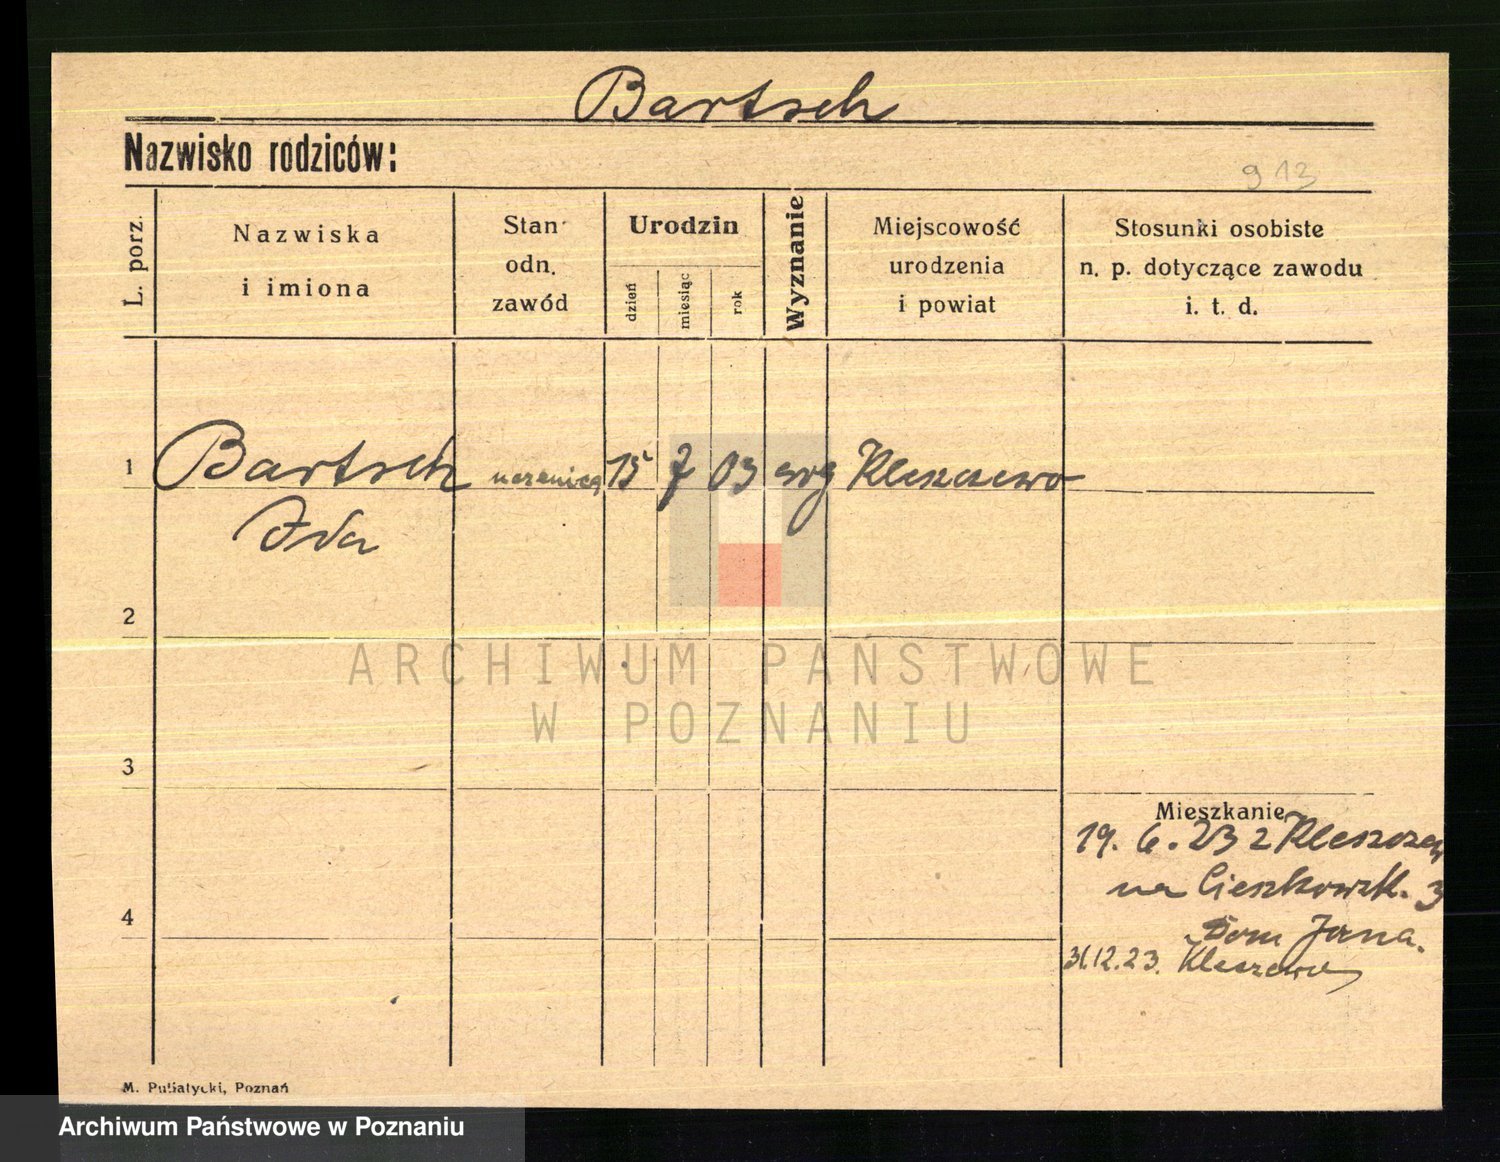 Bartsch
Nazwisko rodziców:
913
L. porz.
Nazwiska
i imiona
Stan
odn.
zawód
Urodzin
dzień
miesiąc
rok
Wyznanie
Miejscowość
urodzenia
i powiat
Stosunki osobiste
n. p. dotyczące zawodu
i. t. d.
1 Bartsch uczenica 15 7 03 ewg Kleszczewo
Ida
2
ARCHIWUM PAŃSTWOWE
W POZNANIU
3
Mieszkanie
19. 6. 23 z Kleszczew
na Cieszkowsk. 3
4
Dom Jana.
31.12.23. Kleszczewo
M. Pubiatycki, Poznań
Archiwum Państwowe w Poznaniu